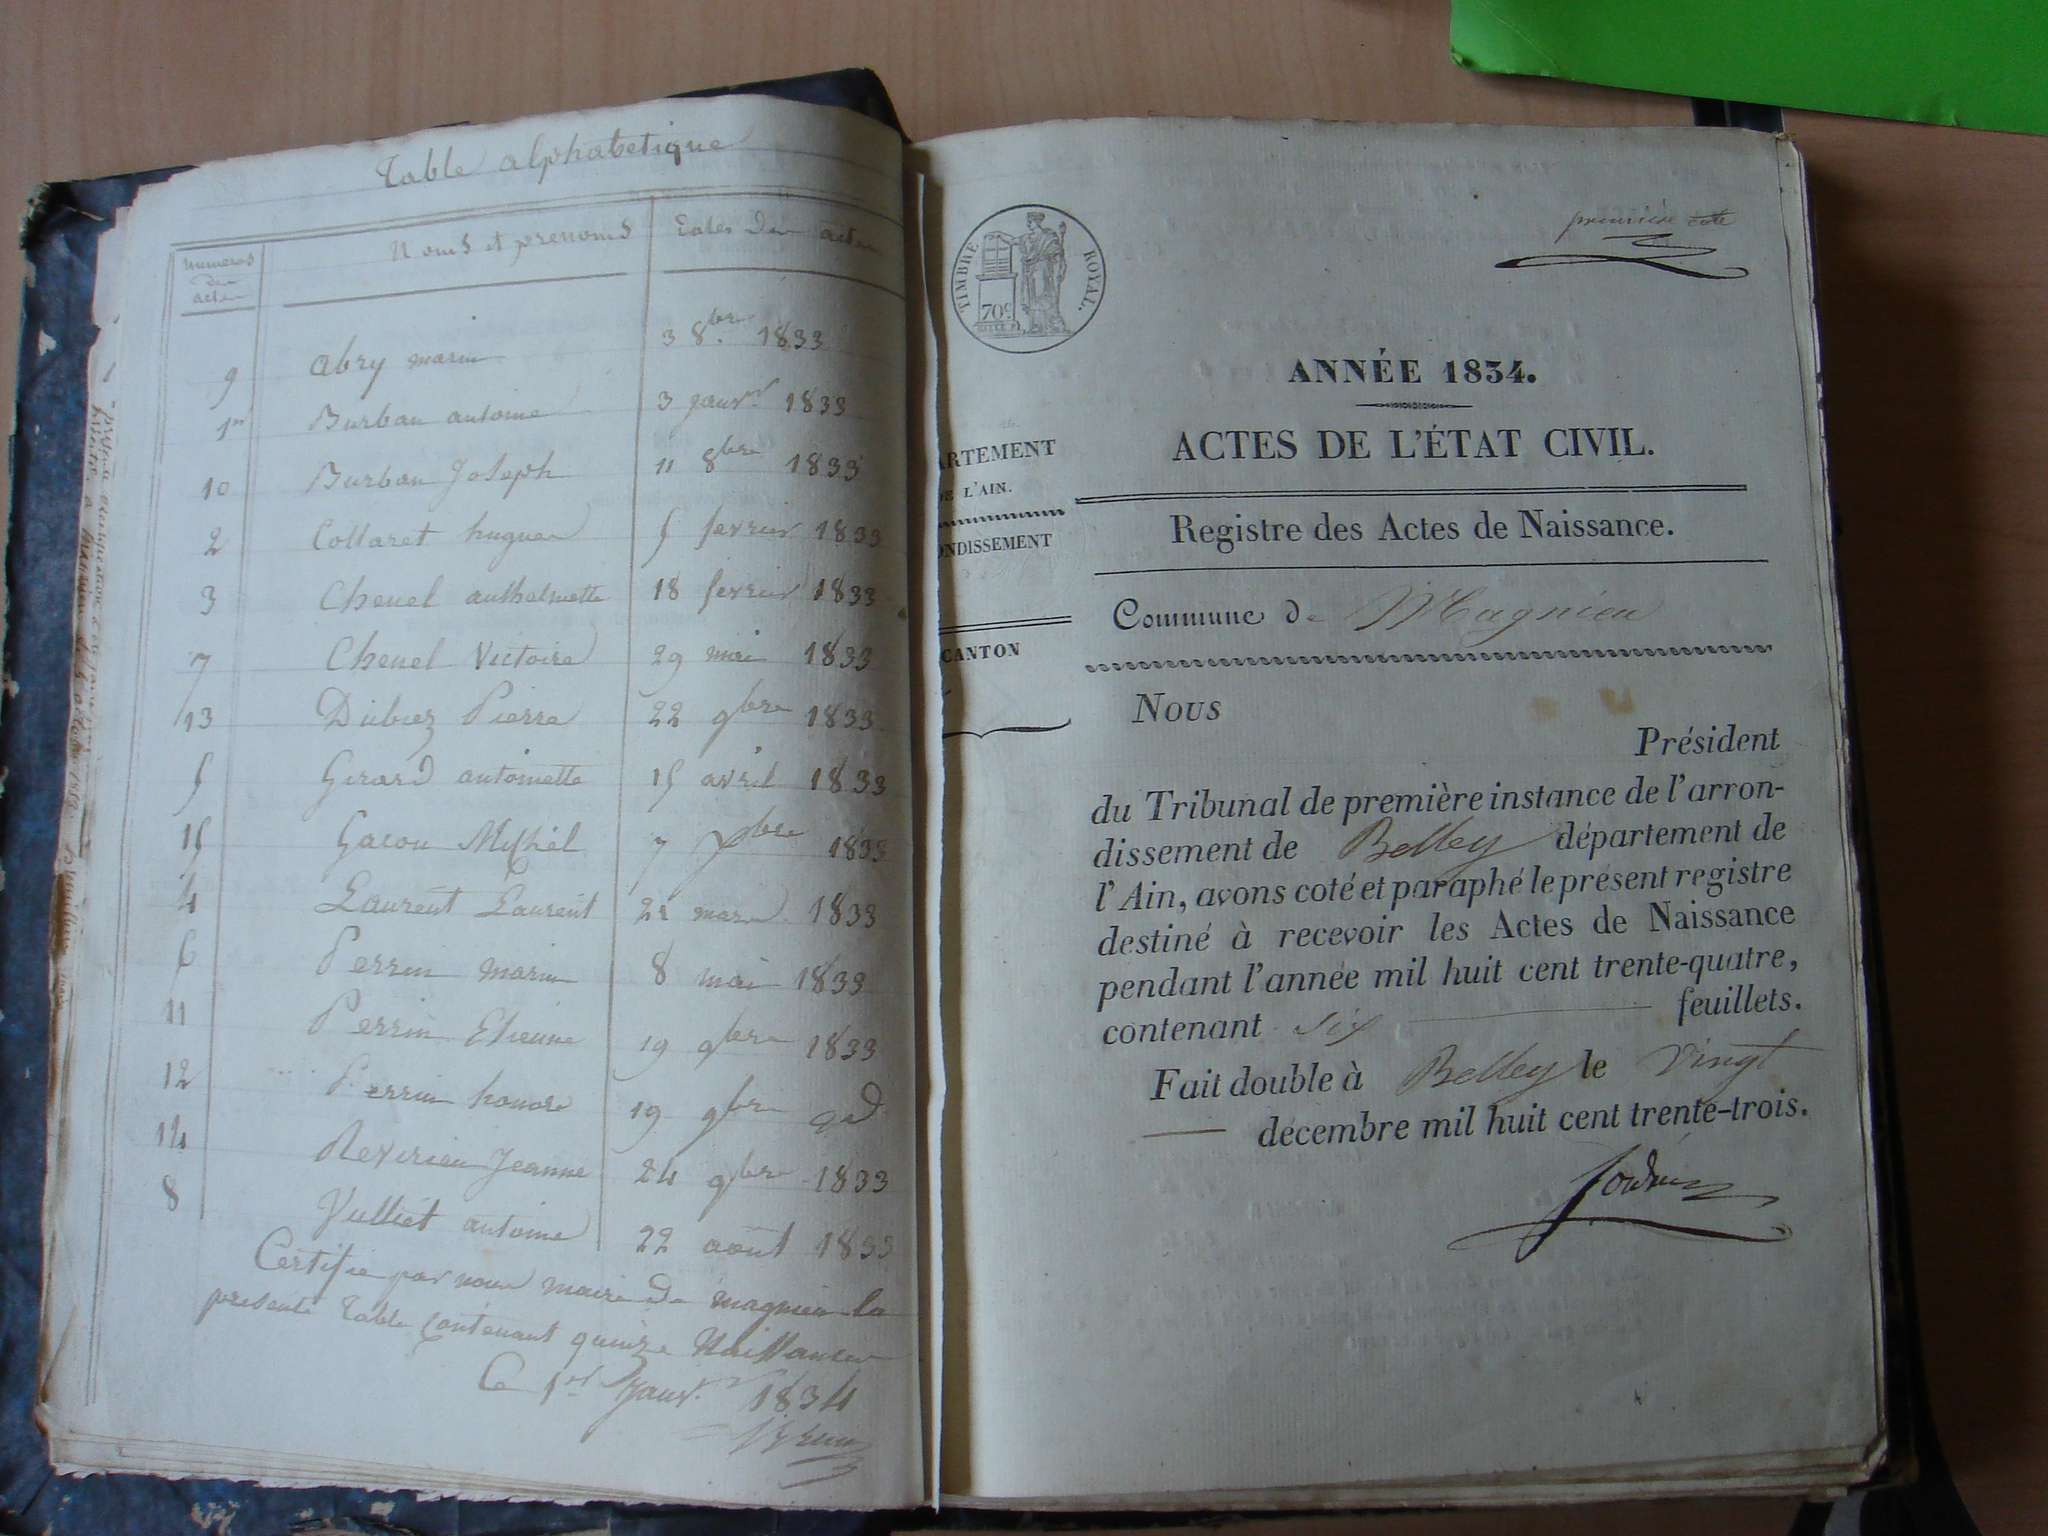 Table alphabetique
numeros des actes
Noms et prenoms
Dates des actes
9 Abry marie 3 8bre 1833
1er Burban antoine 3 janvr 1833
10 Burban Joseph 11 8bre 1833
2 Collaret hugues 5 fevrier 1833
3 Chenel anthelmette 18 fevrier 1833
7 Chenel Victoire 29 mai 1833
13 Dubiez Pierre 22 9bre 1833
5 Girard antoinette 15 avril 1833
15 Gacon Michel 7 Xbre 1833
4 Laurent Laurent 21 mars 1833
6 Perrin marie 8 mai 1833
11 Perrin Etienne 19 9bre 1833
12 Perrin honore 19 9bre
14 Revirieu Jeanne 24 9bre 1833
8 Vulliet antoine 22 août 1833
Certifié par nous maire de magnieu la
presente Table contenant quinze Naissances
Ce 1er Janvr 1834
première
TIMBRE ROYAL.
70c
ANNÉE 1834.
ACTES DE L'ÉTAT CIVIL.
ARTEMENT
DE L'AIN.
ONDISSEMENT
CANTON
Registre des Actes de Naissance.
Commune de Magnieu
Nous
Président
du Tribunal de première instance de l'arron-
dissement de Belley département de
l'Ain, avons coté et paraphé le présent registre
destiné à recevoir les Actes de Naissance
pendant l'année mil huit cent trente-quatre,
contenant six feuillets.
Fait double à Belley le vingt
décembre mil huit cent trente-trois.